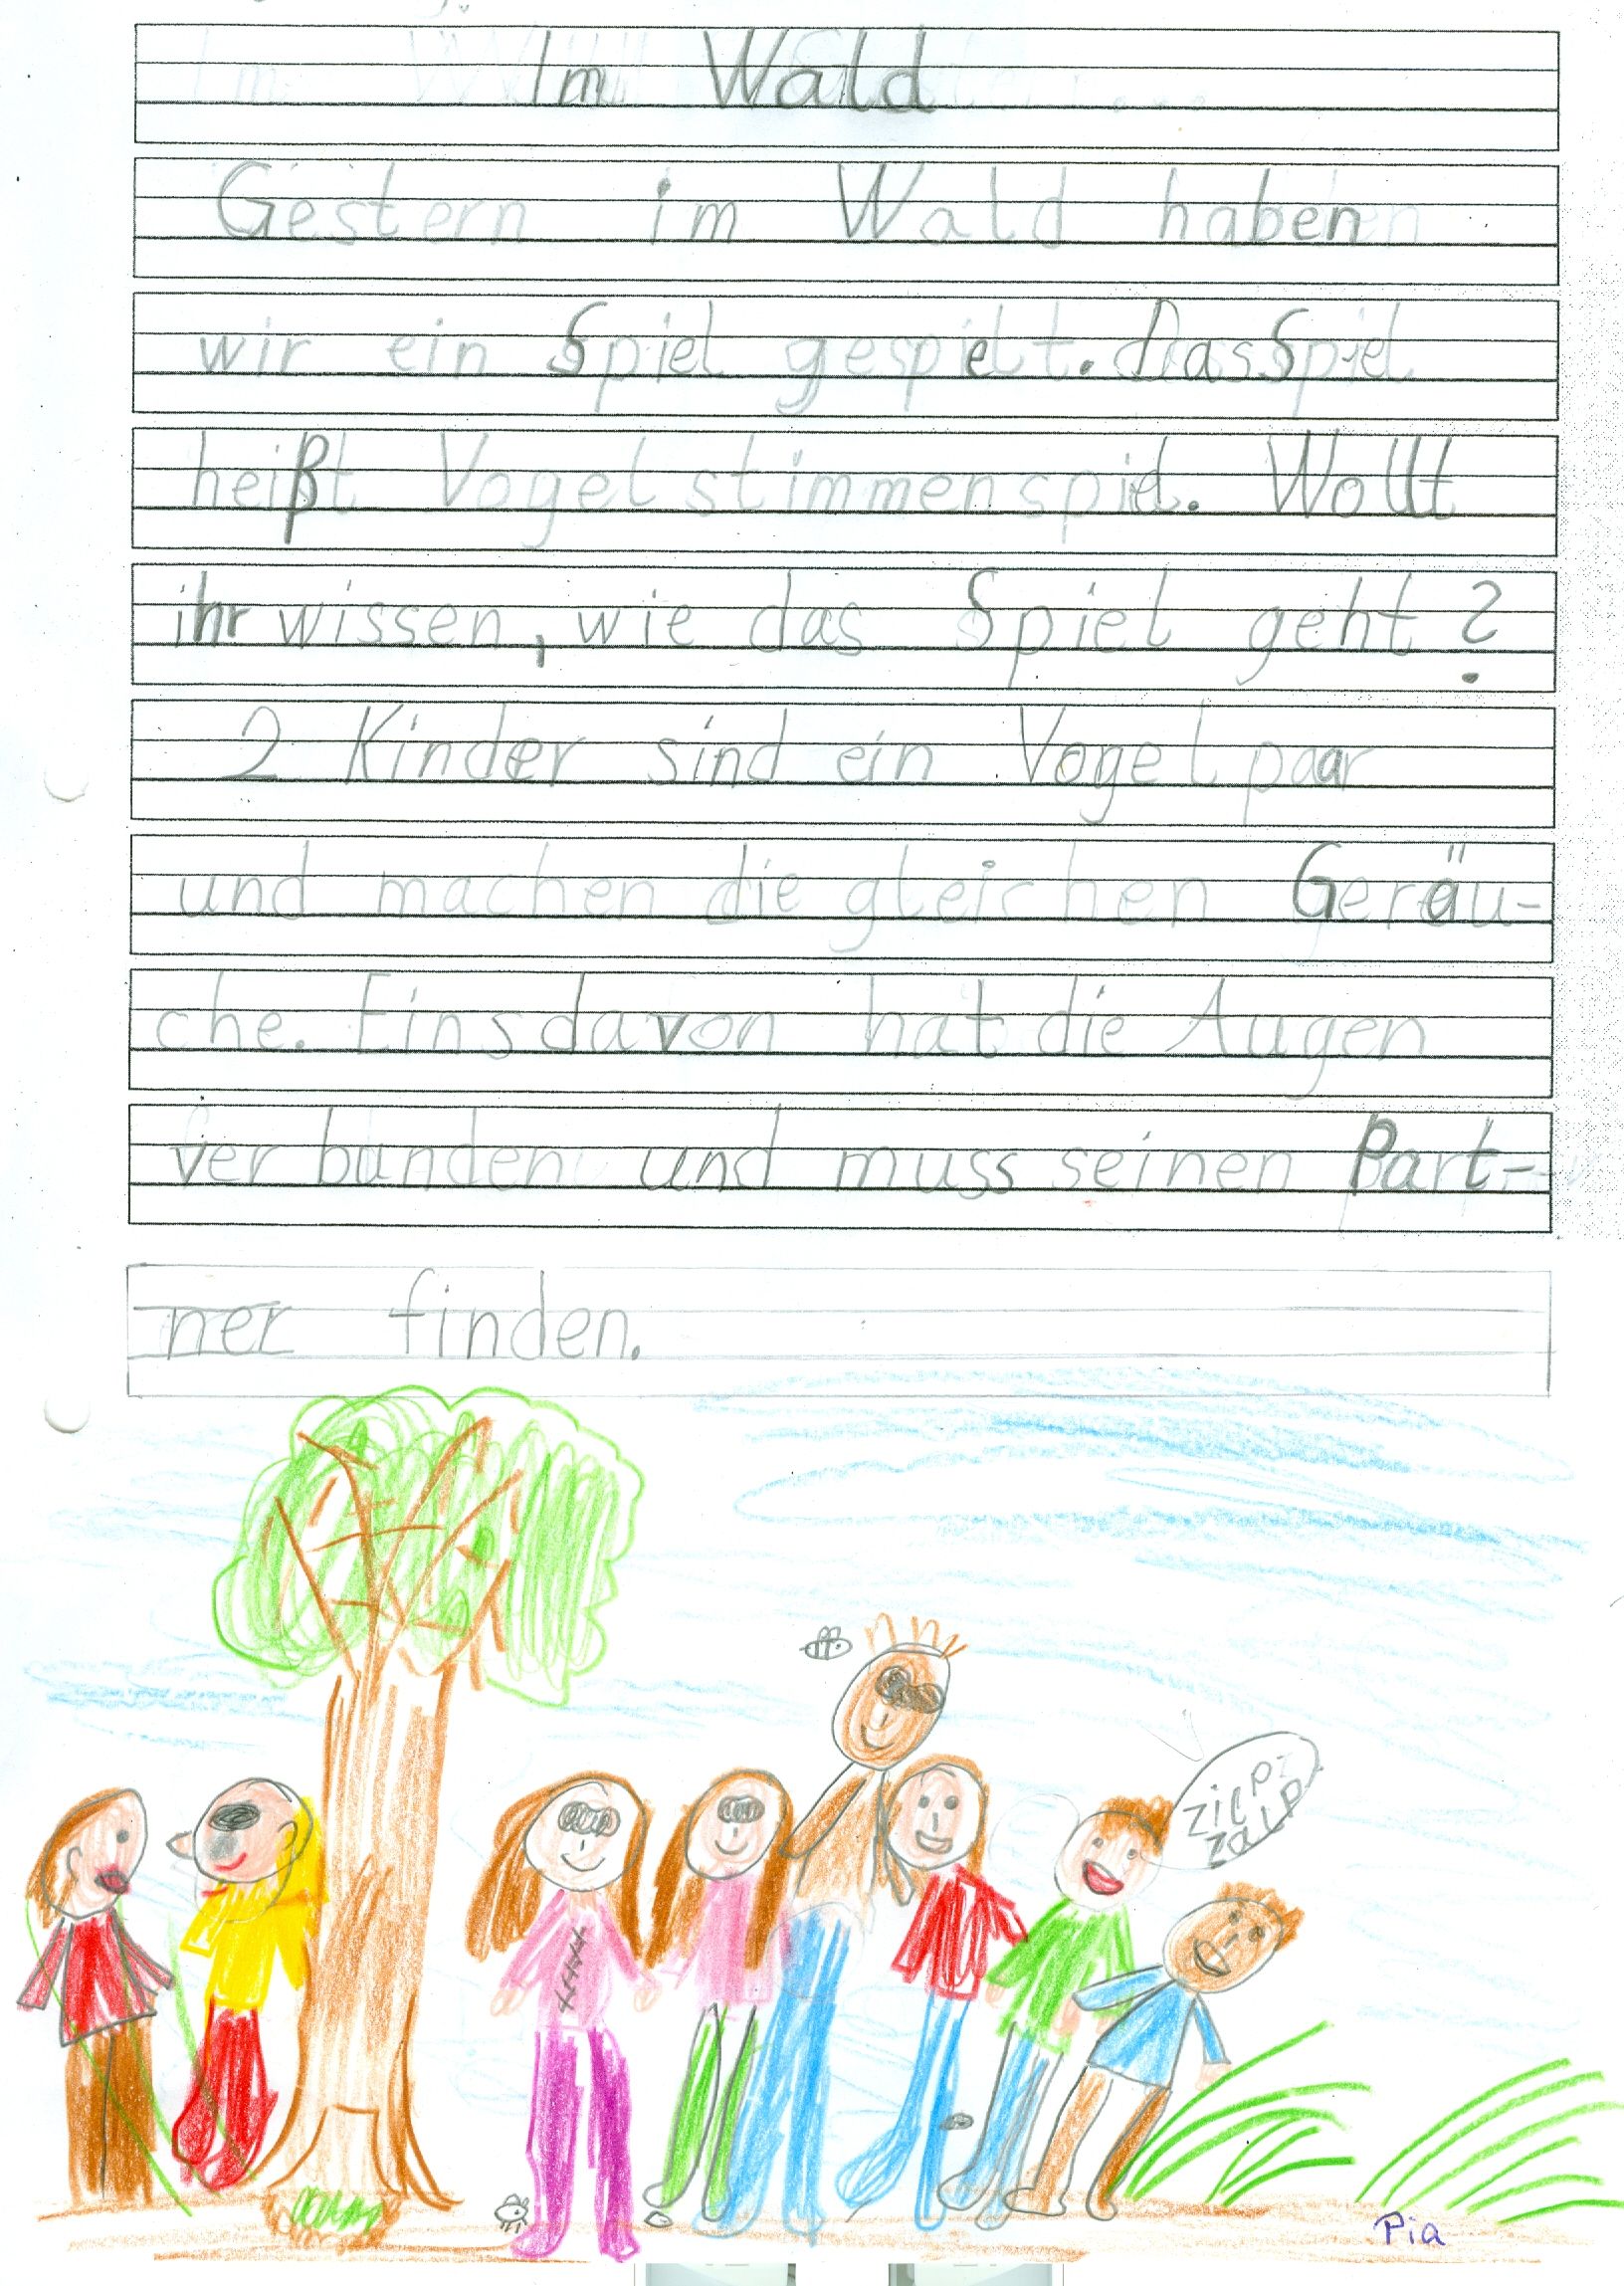 Im Wald
Gestern im Wald haben
wir ein Spiel gespielt. Das Spiel
heißt Vogelstimmenspiel. Wollt
ihr wissen, wie das Spiel geht?
2 Kinder sind ein Vogelpaar
und machen die gleichen Geräu-
che. Eins davon hat die Augen
verbunden und muss seinen Part-
ner finden.
zilp
zalp
Pia